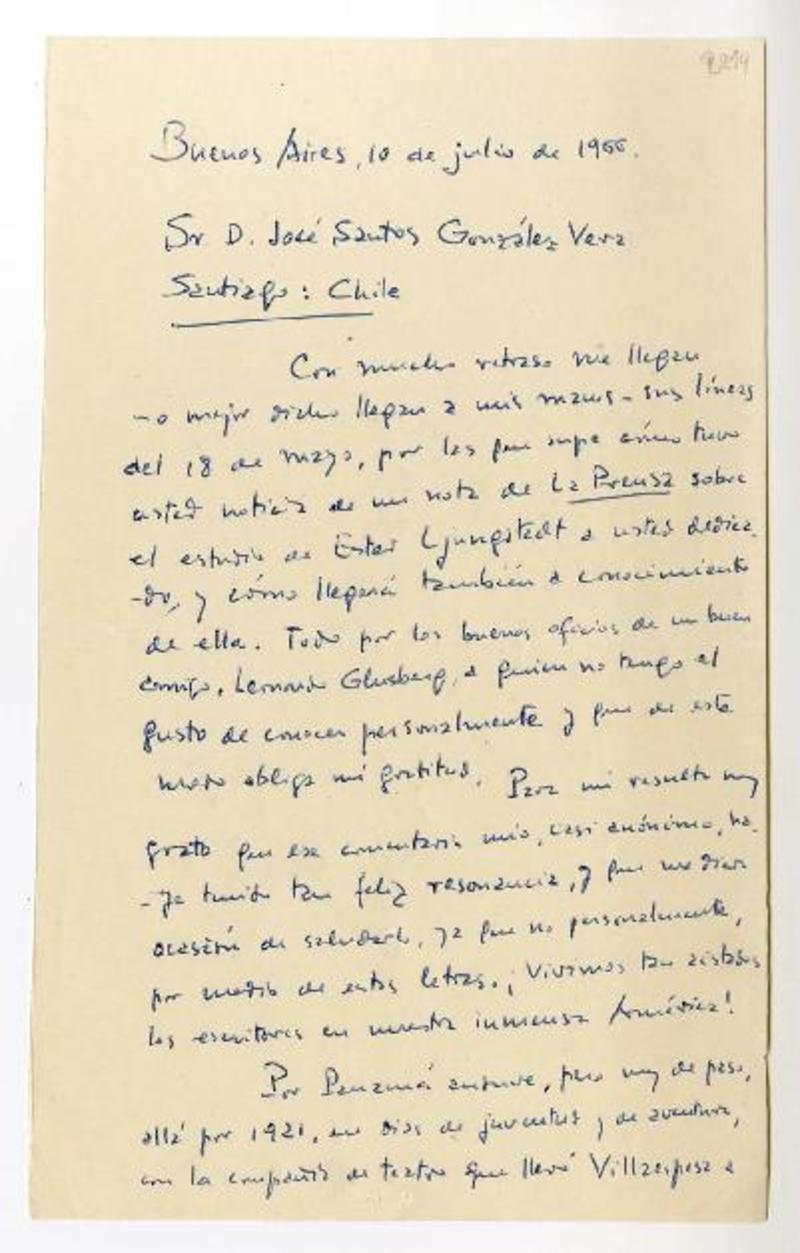 Buenos Aires, 10 de julio de 1966.
Sr D. José Santos González Vera
Santiago: Chile
Con mucho retraso me llegan
-o mejor dicho llegan a mis manos- sus líneas
del 18 de mayo, por las que supe cómo tuvo
usted noticia de un nota de La Prensa sobre
el estudio de Ester Ljungstedt a usted dedica
-do, y cómo llegará también a conocimiento
de ella. Todo por los buenos oficios de un buen
amigo, Leonardo Glusberg, a quien no tengo el
gusto de conocer personalmente y que de este
modo obliga mi gratitud. Para mí resulta muy
grato que ese comentario mío, casi anónimo, ha
-ya tenido tan feliz resonancia, y que me diera
ocasión de saludarlo, ya que no personalmente,
por medio de estas letras. ¡Vivimos tan aislados
los escritores en nuestra inmensa América!
Por Panamá anduve, pero muy de paso,
allá por 1921, en días de juventud y de aventura,
con la compañía de teatro que llevó Villaespesa a